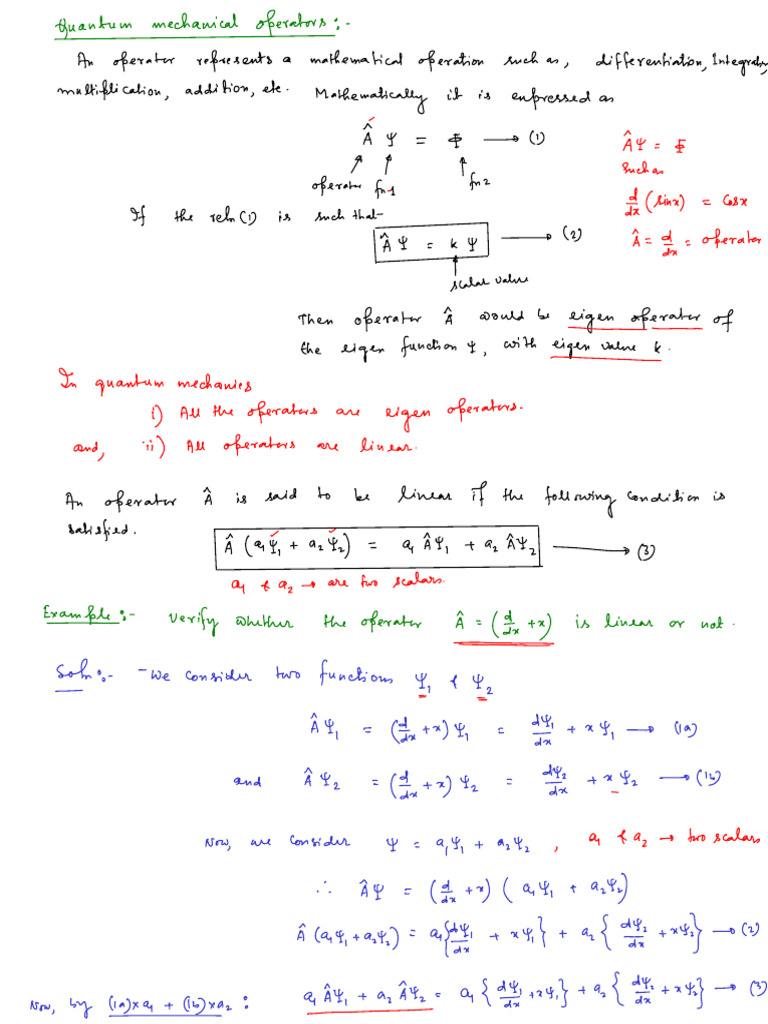 Quantum mechanical operators:-
An operator represents a mathematical operation such as, differentiation, Integratn,
multiplication, addition, etc. Mathematically it is expressed as
Â Ψ = Φ → (1)
operator fn-1 fn2
Â Ψ = Φ
such as
d/dx (sinx) = cosx
Â = d/dx = operator
If the reln(1) is such that-
Â Ψ = k Ψ → (2)
scalar value
Then operator Â would be eigen operator of
the eigen function Ψ, with eigen value k.
In quantum mechanics
i) All the operators are eigen operators.
and, ii) All operators are linear.
An operator Â is said to be linear if the following condition is
satisfied.
Â (a₁Ψ₁ + a₂Ψ₂) = a₁ÂΨ₁ + a₂ÂΨ₂ → (3)
a₁ & a₂ → are two scalars.
Example:- Verify whether the operator Â = (d/dx + x) is linear or not.
Soln:- We consider two functions Ψ₁ & Ψ₂
ÂΨ₁ = (d/dx + x)Ψ₁ = dΨ₁/dx + xΨ₁ → (1a)
and ÂΨ₂ = (d/dx + x)Ψ₂ = dΨ₂/dx + xΨ₂ → (1b)
Now, we consider Ψ = a₁Ψ₁ + a₂Ψ₂ , a₁ & a₂ → two scalars
∴ ÂΨ = (d/dx + x) (a₁Ψ₁ + a₂Ψ₂)
Â (a₁Ψ₁ + a₂Ψ₂) = a₁{dΨ₁/dx + xΨ₁} + a₂{dΨ₂/dx + xΨ₂} → (2)
Now, by (1a)xa₁ + (1b)xa₂ : a₁ÂΨ₁ + a₂ÂΨ₂ = a₁{dΨ₁/dx + xΨ₁} + a₂{dΨ₂/dx + xΨ₂} → (3)